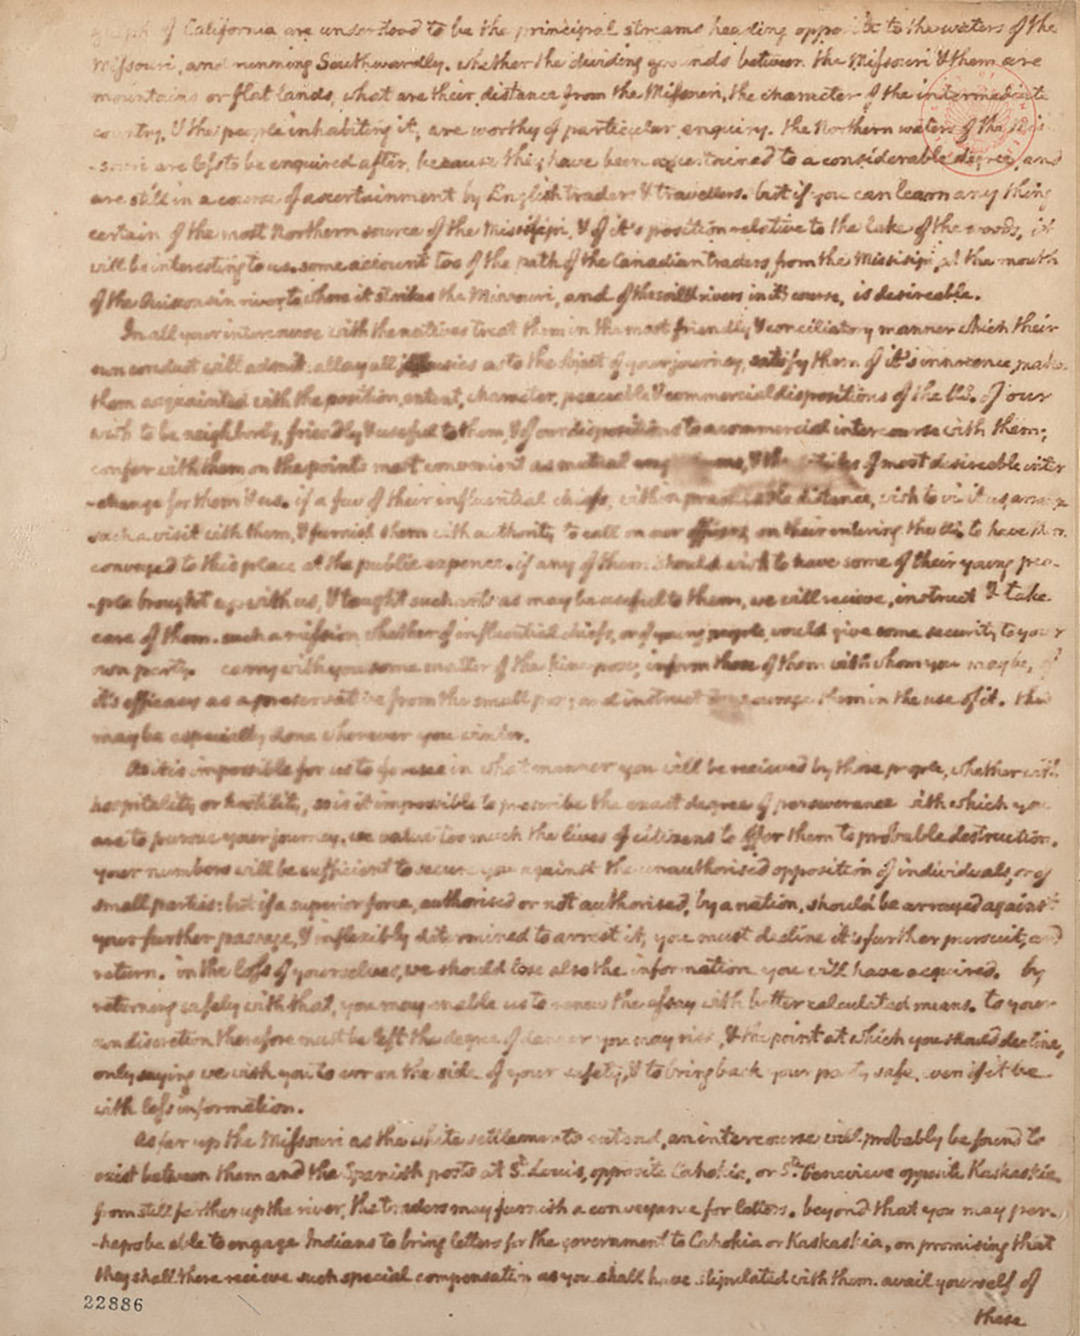 gulph of California are understood to be the principal streams heading opposite to the waters of the
Missouri, and running Southwardly. whether the dividing grounds between the Missouri & them are
mountains or flat lands, what are their distance from the Missouri, the character of the intermediate
country, & the people inhabiting it, are worthy of particular enquiry. the Northern waters of the Mis-
-souri are less to be enquired after, because they have been ascertained to a considerable degree, and
are still in a course of ascertainment by English traders & travellers. but if you can learn any thing
certain of the most Northern source of the Missisipi, & of it's position relative to the lake of the woods, it
will be interesting to us. some account too of the path of the Canadian traders from the Missisipi, at the mouth
of the Ouisconsin river, to where it strikes the Missouri, and of the soil & rivers in it's course, is desireable.
In all your intercourse with the natives treat them in the most friendly & conciliatory manner which their
own conduct will admit: allay all jealousies as to the object of your journey, satisfy them of it's innocence, make
them acquainted with the position, extent, character, peaceable & commercial dispositions of the U.S. of our
wish to be neighborly, friendly & useful to them, & of our dispositions to a commercial intercourse with them;
confer with them on the points most convenient as mutual & the articles of most desireable inter
-change for them & us. if a few of their influential chiefs, within practicable distance, wish to visit us, arrange
such a visit with them, & furnish them with authority to call on our officers, on their entering the U.S. to have them
conveyed to this place at the public expence. if any of them should wish to have some of their young peo-
-ple brought up with us, & taught such arts as may be useful to them, we will recieve, instruct & take
care of them. such a mission whether of influential chiefs, or of young people, would give some security to your
own party. carry with you some matter of the kine pox; inform those of them with whom you may be, of
it's efficacy as a preservative from the small pox; and instruct & encourage them in the use of it. this
may be especially done wherever you winter.
As it is impossible for us to foresee in what manner you will be recieved by those people, whether with
hospitality or hostility, so is it impossible to prescribe the exact degree of perseverance with which you
are to pursue your journey. we value too much the lives of citizens to offer them to probable destruction.
your numbers will be sufficient to secure you against the unauthorised opposition of individuals, or of
small parties: but if a superior force, authorised or not authorised, by a nation, should be arrayed against
your further passage, & inflexibly determined to arrest it, you must decline it's further pursuit, and
return. in the loss of yourselves, we should lose also the information you will have acquired. by
returning safely with that, you may enable us to renew the essay with better calculated means. to your
own discretion therefore must be left the degree of danger you may risk, & the point at which you should decline,
only saying we wish you to err on the side of your safety, & to bring back your party safe, even if it be
with less information.
As far up the Missouri as the white settlements extend, an intercourse will probably be found to
exist between them and the Spanish posts at St. Louis, opposite Cahokia, or Ste. Genevieve opposite Kaskaskia.
from still farther up the river, the traders may furnish a conveyance for letters. beyond that you may per-
-haps be able to engage Indians to bring letters for the government to Cahokia or Kaskaskia, on promising that
they shall there recieve such special compensation as you shall have stipulated with them. avail yourself of
these
22886